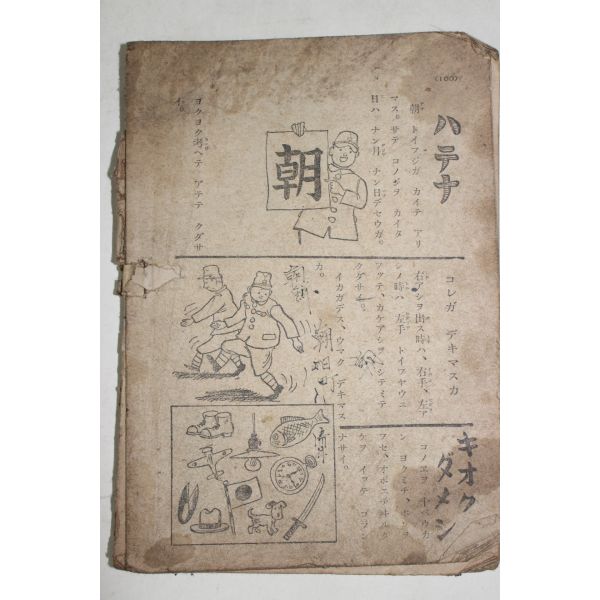 (100)
ハテナ
朝 トイフジガ カイテ アリ
マス。サテ コノジヲ カイタ
日ハ ナン月 ナン日デセウガ。
ヨクヨク考ヘテ アテテ クダサ
イ。
朝
コレガ デキマスカ
右アシヲ出ス時ハ、右手、左ア
シノ時ハ 左手 トイフヤウニ
アツテ、カケアシヲ シテミテ
クダサイ。
イカガデス、ウマク デキマス
カ。
キオクダメシ
コノエヲ
ン ヨクミテ、ホンヲ
フセ、オボエテヰルダ
ケヲ イツテ ゴラン
ナサイ。